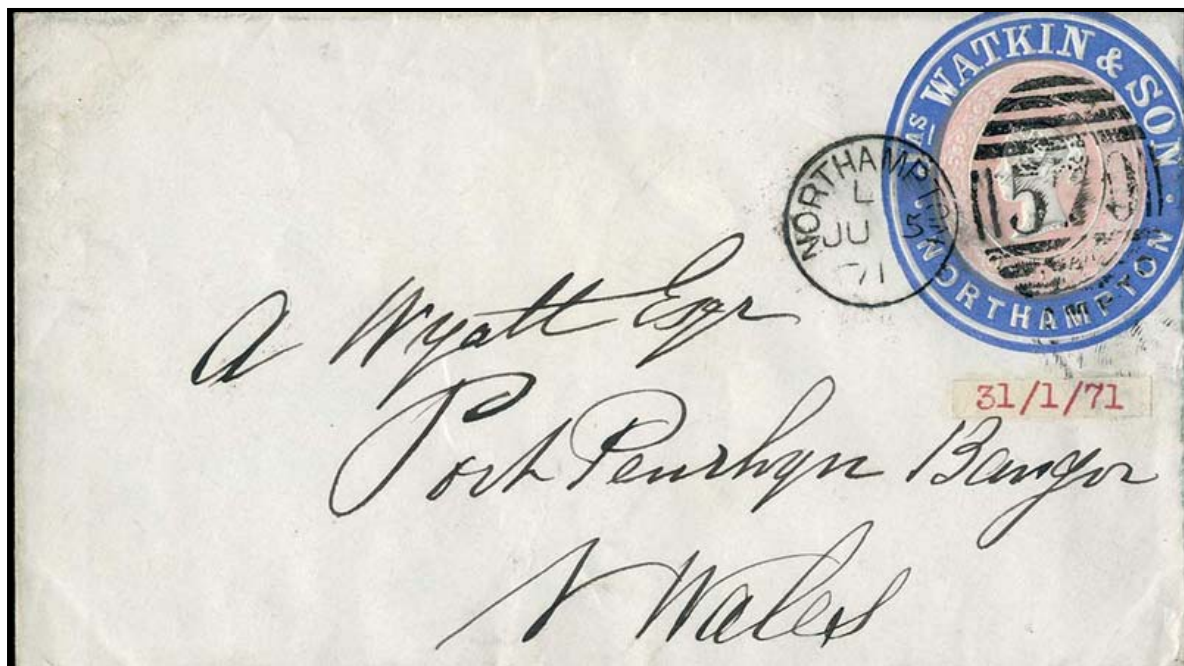 WATKIN & SON
NORTHAMPTON
NORTHAMPTON
L
JU 5
71
31/1/71
A Wyatt Esqr
Port Penrhyn Bangor
N Wales